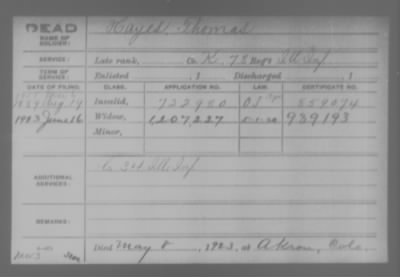 DEAD Hayes Thomas
NAME OF SOLDIER:
SERVICE: Late rank, Co. K, 78 Reg't Ill Inf
TERM OF SERVICE: Enlisted , 1 Discharged , 1
DATE OF FILING. CLASS. APPLICATION NO. LAW. CERTIFICATE NO.
1889 Aug 14 Invalid, 722980 559074
1923 June 16 Widow, 1207227 939193
Minor,
ADDITIONAL SERVICES: Co 34 Ill Inf
REMARKS:
Died May 8, 1923, at Akron, Colo.